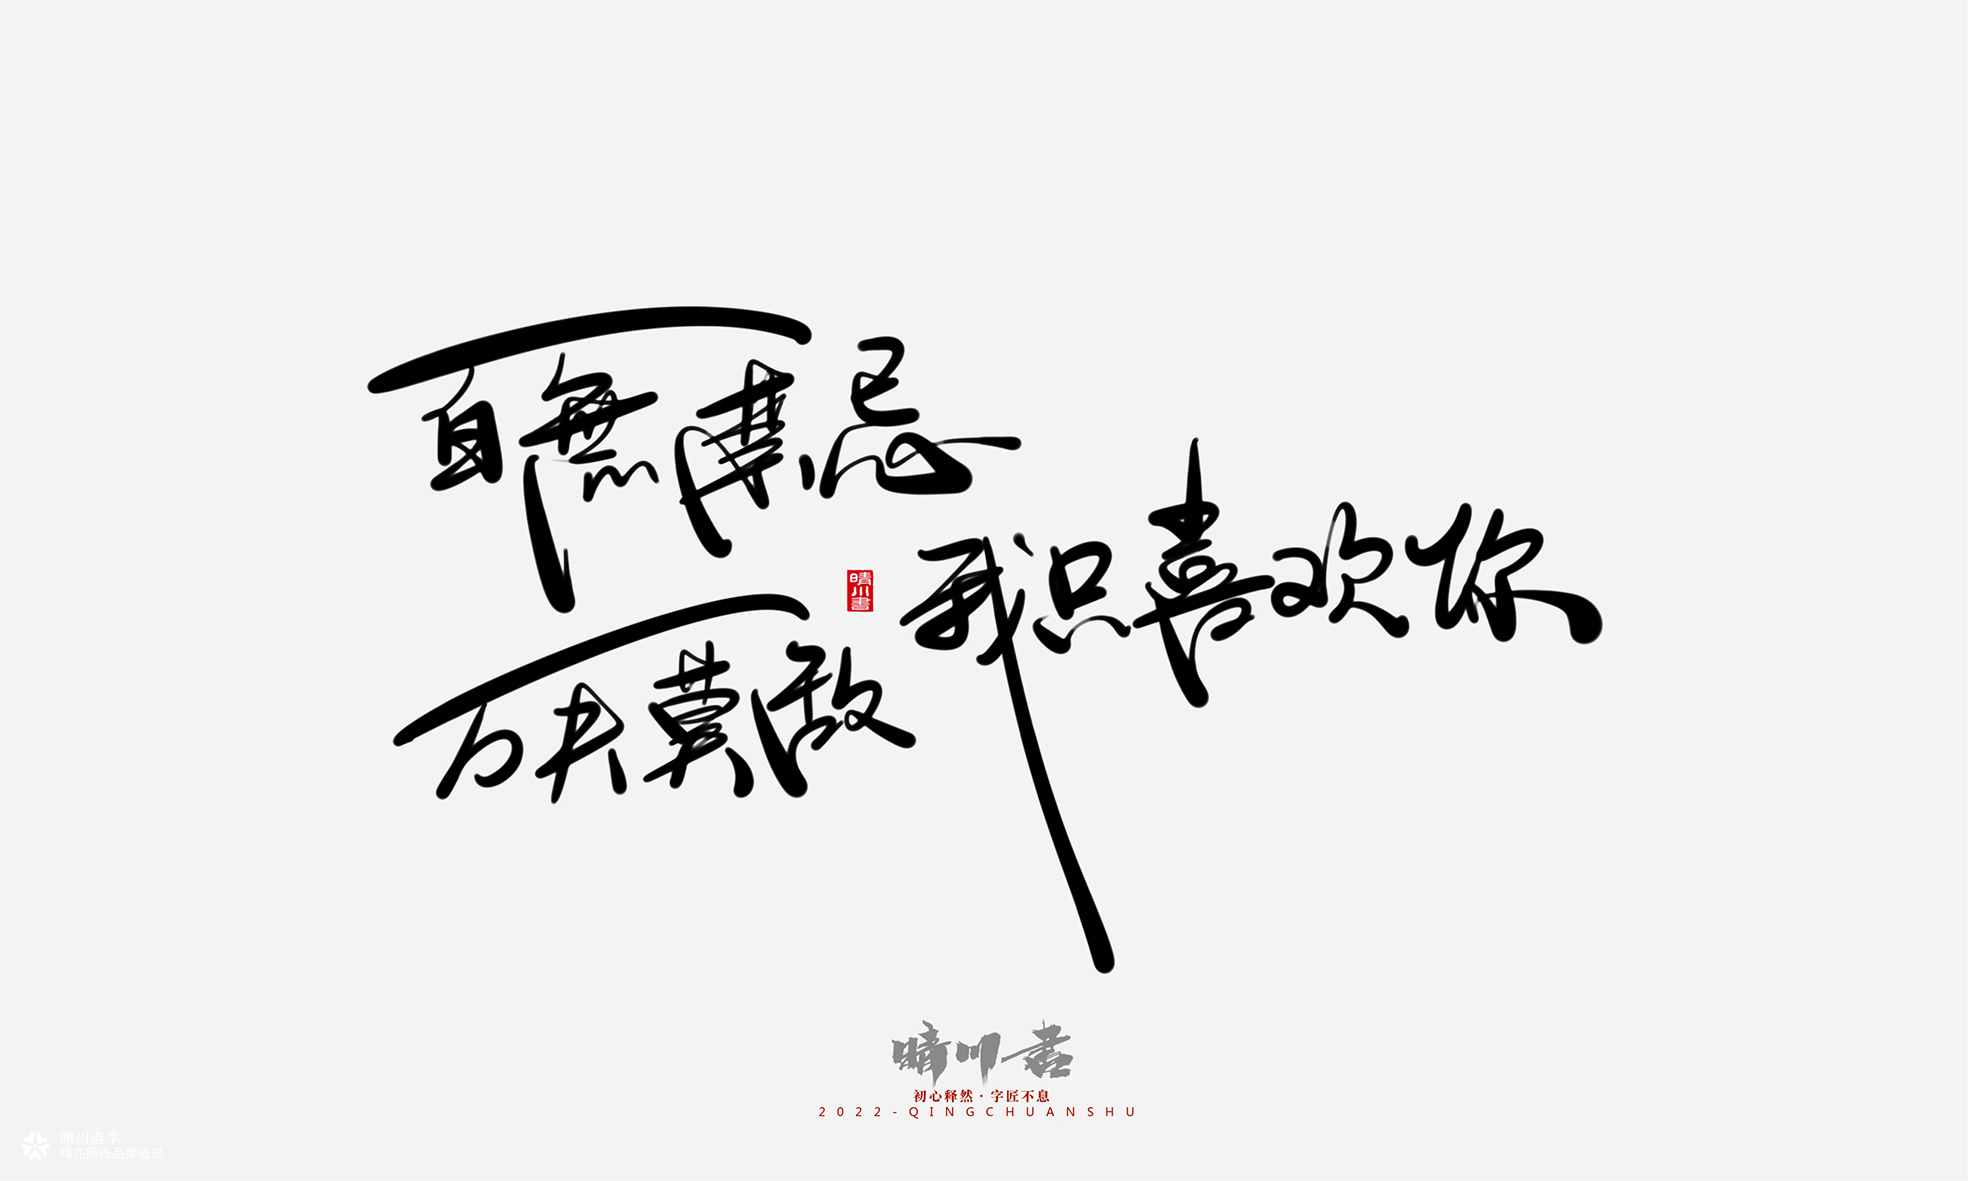 百無禁忌
万夫莫敵
我只喜欢你
晴川書
晴川書
初心释然·字匠不息
2022-QINGCHUANSHU
晴川造字
梅花网作品库收录